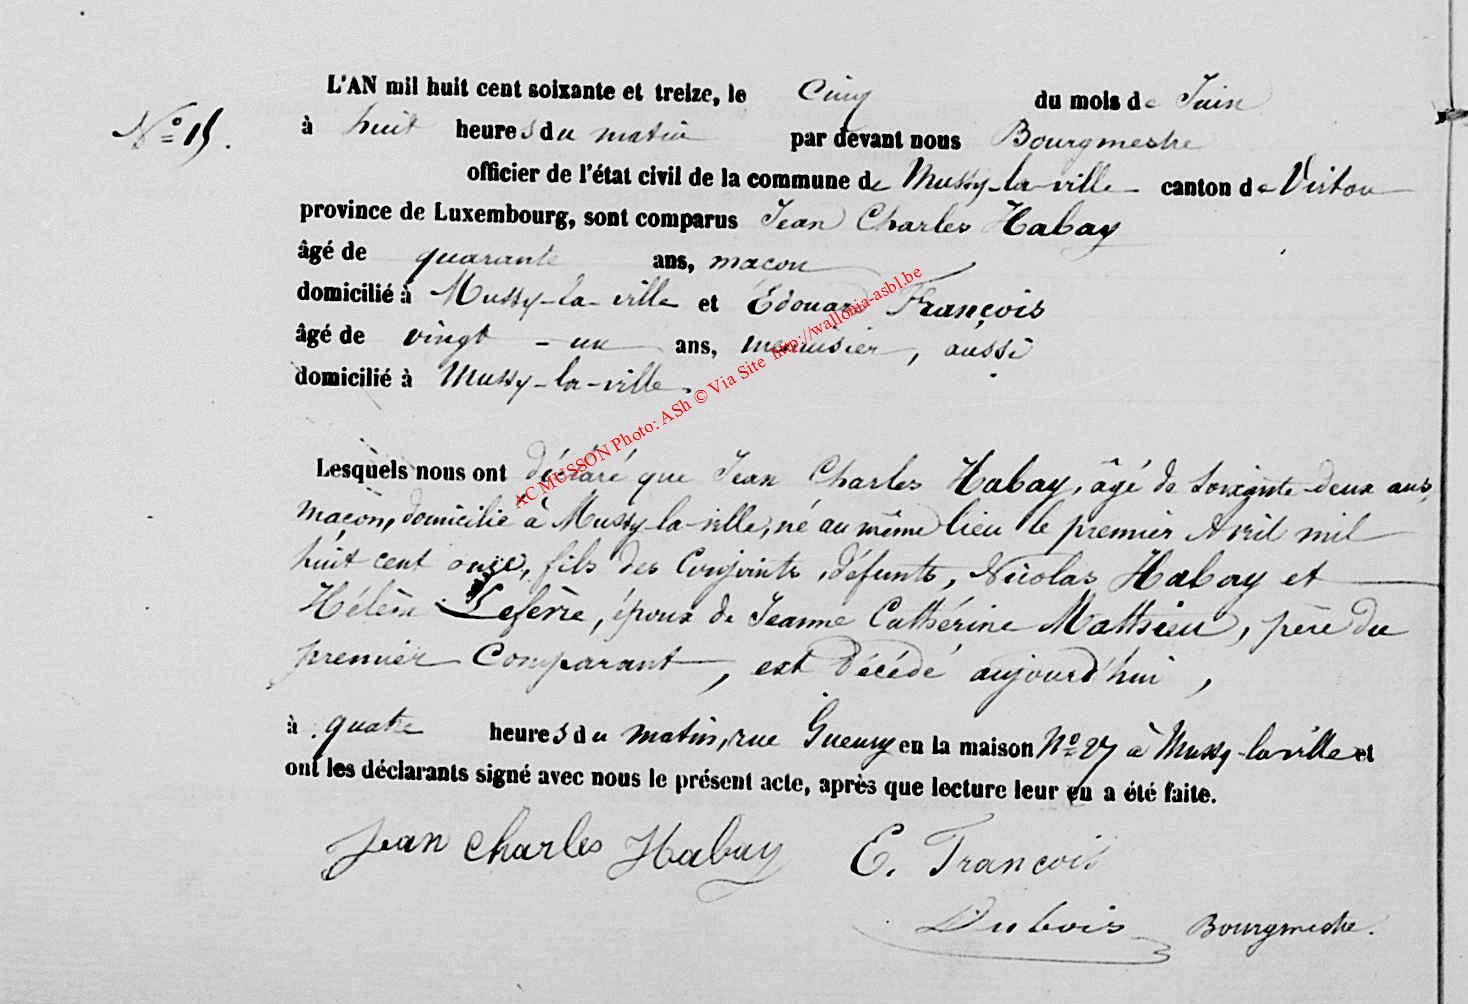 L'AN mil huit cent soixante et treize, le cinq du mois de Juin
N° 15.
à huit heures du matin par devant nous Bourgmestre
officier de l'état civil de la commune de Mussy-la-ville canton de Virton
province de Luxembourg, sont comparus Jean Charles Habay
âgé de quarante ans, maçon
domicilié à Mussy-la-ville et Edouard François
âgé de vingt-un ans, menuisier, aussi
domicilié à Mussy-la-ville.
AC MUSSON Photo: ASh © Via Site http://wallonia-asbl.be
Lesquels nous ont déclaré que Jean Charles Habay, âgé de soixante-deux ans,
maçon, domicilié à Mussy-la-ville, né au même lieu le premier Avril mil
huit cent onze, fils des conjoints défunts, Nicolas Habay et
Hélène Lefèvre, époux de Jeanne Cathérine Mathieu, père du
premier Comparant, est décédé aujourd'hui,
à quatre heures du matin, rue Gueury en la maison N° 27 à Mussy-la-ville et
ont les déclarants signé avec nous le présent acte, après que lecture leur en a été faite.
Jean Charles Habay E. François
Dubois Bourgmestre.